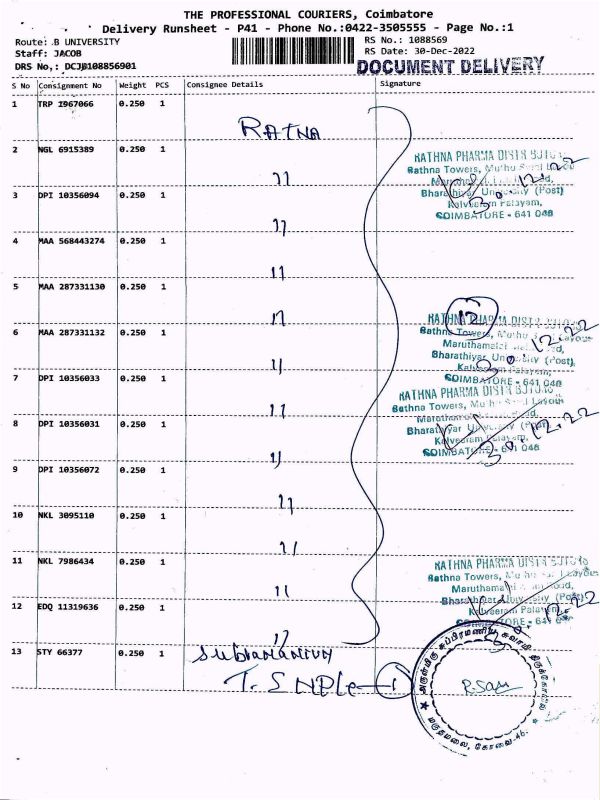 THE PROFESSIONAL COURIERS, Coimbatore
Delivery Runsheet - P41 - Phone No.:0422-3505555 - Page No.:1
Route: B UNIVERSITY
RS No.: 1088569
Staff: JACOB
RS Date: 30-Dec-2022
DRS No,: DCJB108856901
DOCUMENT DELIVERY
S No Consignment No Weight PCS Consignee Details Signature
1 TRP 1967066 0.250 1
RATNA
2 NGL 6915389 0.250 1
RATHNA PHARMA DISTRIBUTORS
Rathna Towers,
30.12.22
"
3 DPI 10356094 0.250 1
Bharathiyar University (Post)
Kalveeram Palayam,
COIMBATORE - 641 046
"
4 MAA 568443274 0.250 1
"
5 MAA 287331130 0.250 1
"
12
RATHNA PHARMA DISTRIBUTORS
6 MAA 287331132 0.250 1
Rathna Towers,
30.12.22
Bharathiyar University (Post),
Kalveeram Palayam,
"
7 DPI 10356033 0.250 1
COIMBATORE - 641 046
RATHNA PHARMA DISTRIBUTORS
Rathna Towers,
"
8 DPI 10356031 0.250 1
30.12.22
Bharathiyar University (Post)
Kalveeram Palayam,
COIMBATORE - 641 046
"
9 DPI 10356072 0.250 1
"
10 NKL 3095110 0.250 1
"
11 NKL 7986434 0.250 1
RATHNA PHARMA DISTRIBUTORS
Rathna Towers,
"
12 EDQ 11319636 0.250 1
Bharathiyar University (Post)
Kalveeram Palayam,
COIMBATORE - 641 046
"
13 STY 66377 0.250 1
அருள்மிகு சுப்பிரமணிய சுவாமி திருக்கோயில்
மருதமலை, கோவை.46.